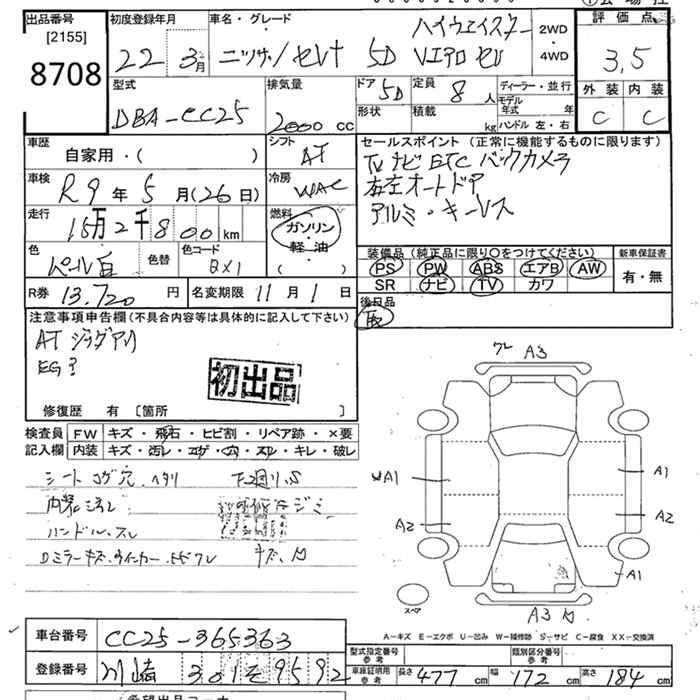 出品番号
[2155]
8708
初度登録年月
22 3月
車名・グレード
ハイウェイスター
ニッサン/セレナ 5D
2WD
・
4WD
評価点
3,5
外装 内装
C C
型式
DBA-CC25
排気量
2000 cc
ドア
5D
定員
8人
形状
積載
kg
ディーラー・並行
モデル年式 年
ハンドル 左・右
車歴
自家用・( )
シフト
AT
車検
R9年5月(26日)
冷房
WAC
走行
15万2千800km
燃料
ガソリン・
軽油・
( )
色
パール白
色替
色コード
BX1
R券 13,720円
名変期限 11月1日
セールスポイント(正常に機能するものに限ります)
TV ナビ ETC バックカメラ
右左オートドア
アルミ・キーレス
装備品(純正品に限り○をつけてください)
PS PW ABS エアB AW
SR ナビ TV カワ
新車保証書
有・無
後日品
注意事項申告欄(不具合内容等は具体的に記入して下さい)
AT ジャダアリ
初出品
修復歴 有 [箇所 ]
検査員
記入欄
FW キズ・飛石・ヒビ割・リペア跡・×要
内装 キズ・汚レ・コゲ・穴・スレ・キレ・破レ
シート コゲ穴 ヘタリ
内装汚レ
ハンドル スレ
Dミラーキズ、ウインカーヒビワレ
ワレ A3
WA1
A2
A1
A2
A1
A3
スペア
A-キズ E-エクボ U-凹み W-補修跡 S-サビ C-腐食 XX-交換済
車台番号 CC25-365363
登録番号 川崎 301 そ 9592
型式指定番号
参考
類別区分番号
参考
車庫証明用
参考
長さ 477cm 幅 172cm 高さ 184cm